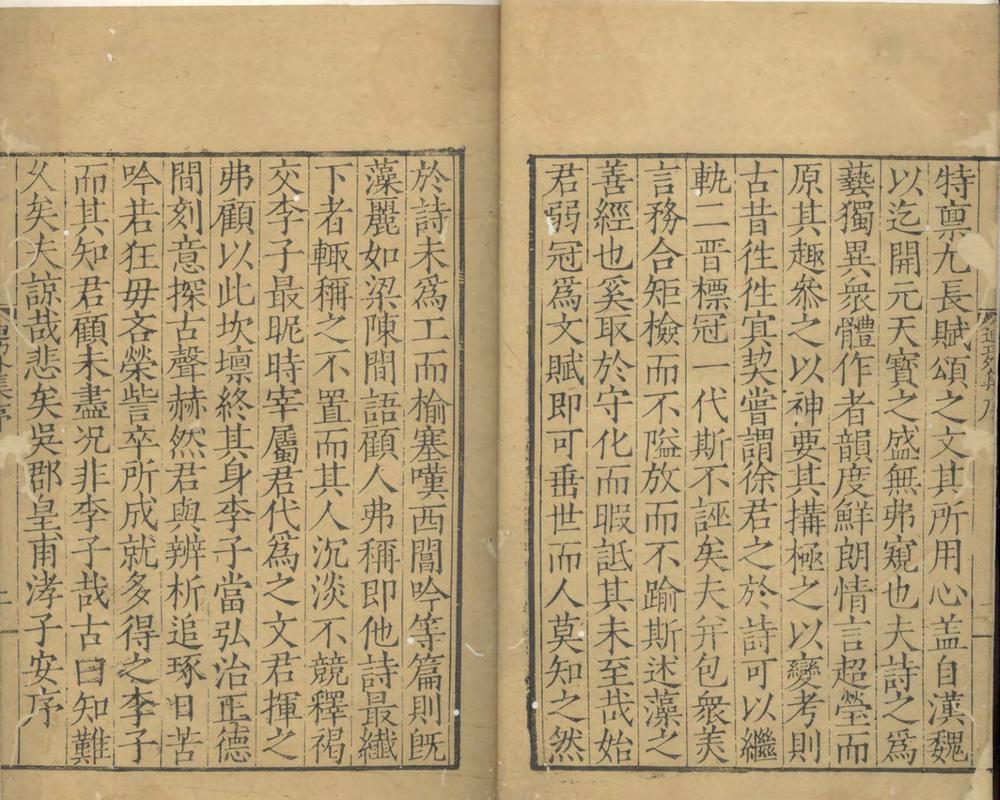 特稟尤長賦頌之文其所用心盖自漢魏
以迄開元天寶之盛無弗窺也夫詩之爲
藝獨異衆體作者韻度鮮朗情言超瑩而
原其趣叅之以神要其搆極之以變考則
古昔徃徃㝠契嘗謂徐君之於詩可以繼
軌二晋標冠一代斯不誣矣夫并包衆美
言務合矩檢而不隘放而不踰斯述藻之
善經也奚取於守化而暇詆其未至哉始
君弱冠爲文賦即可垂世而人莫知之然
於詩未爲工而榆塞嘆西閶吟等篇則旣
藻麗如梁陳間語顧人弗稱即他詩最纎
下者輙稱之不置而其人沉淡不競釋褐
交李子最昵時宰屬君代爲之文君揮之
弗顧以此坎壈終其身李子當弘治正德
間刻意探古聲赫然君與辨析追琢日苦
吟若狂毋吝榮訾卒所成就多得之李子
而其知君顧未盡况非李子哉古曰知難
乆矣夫諒哉悲矣吳郡皇甫涍子安序